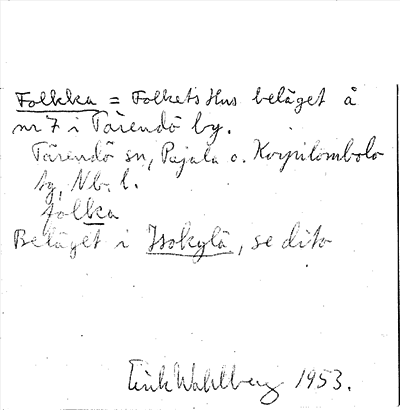 Folkka = Folkets Hus beläget å
nr 7 i Tärendö by.
Tärendö sn, Pajala o. Korpilombolo
tg, Nb. l.
folkka
Beläget i Isokylä, se dito
Erik Wahlberg 1953.